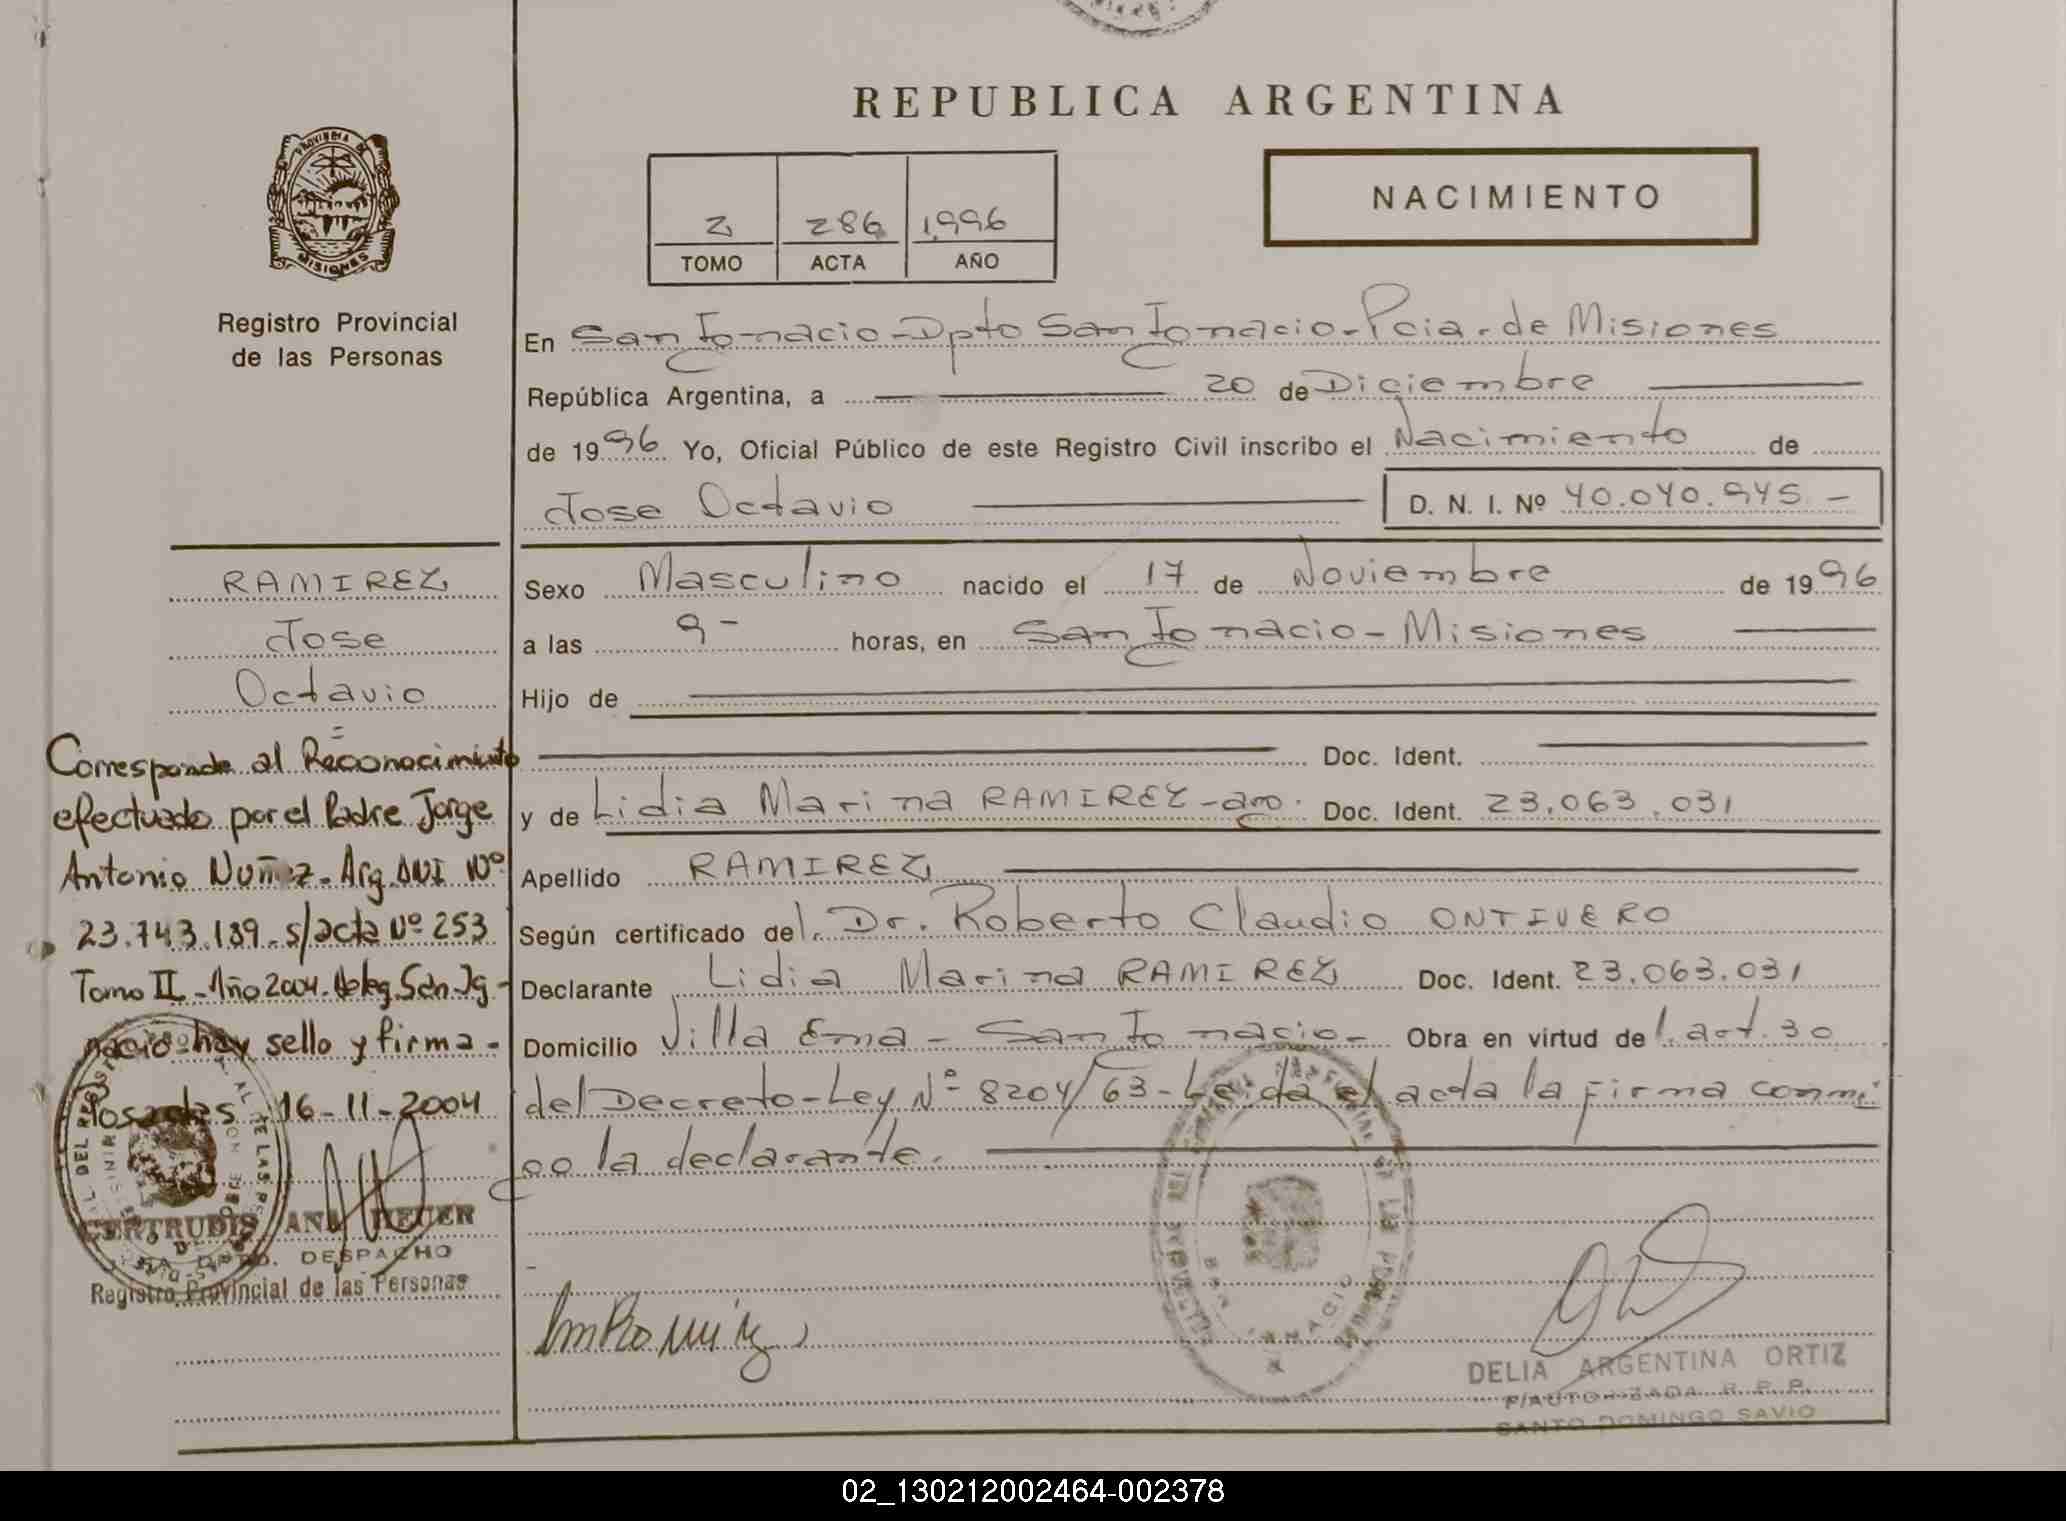 REPUBLICA ARGENTINA
NACIMIENTO
2 286 1996
TOMO ACTA AÑO
PROVINCIA DE
MISIONES
Registro Provincial
de las Personas
En San Ignacio - Dpto San Ignacio - Pcia. de Misiones
República Argentina, a 20 de Diciembre
de 1996 Yo, Oficial Público de este Registro Civil inscribo el Nacimiento de
Jose Octavio D. N. I. Nº 40.040.945 -
Sexo Masculino nacido el 17 de Noviembre de 1996
a las 9 - horas, en San Ignacio - Misiones
Hijo de
Doc. Ident.
y de Lidia Marina RAMIREZ - arg. Doc. Ident. 23.063.031
Apellido RAMIREZ
Según certificado del Dr. Roberto Claudio ONTIVERO
Declarante Lidia Marina RAMIREZ Doc. Ident. 23.063.031
Domicilio Villa Ema - San Ignacio - Obra en virtud del art. 30
del Decreto-Ley Nº 8204/63 - Leida el acta la firma conmi
go la declarante.
RAMIREZ
Jose
Octavio
Corresponde al Reconocimiento
efectuado por el Padre Jorge
Antonio Nuñez - Arg. DNI Nº
23.743.189 - s/acta Nº 253
Tomo II - Año 2004. Deleg. San Ig-
nacio - hay sello y firma -
Posadas 16-11-2004
GERTRUDIS ANA
DPTO. DESPACHO
Registro Provincial de las Personas
DELIA ARGENTINA ORTIZ
P/AUTORIZADA R. P. P.
SANTO DOMINGO SAVIO
02_130212002464-002378